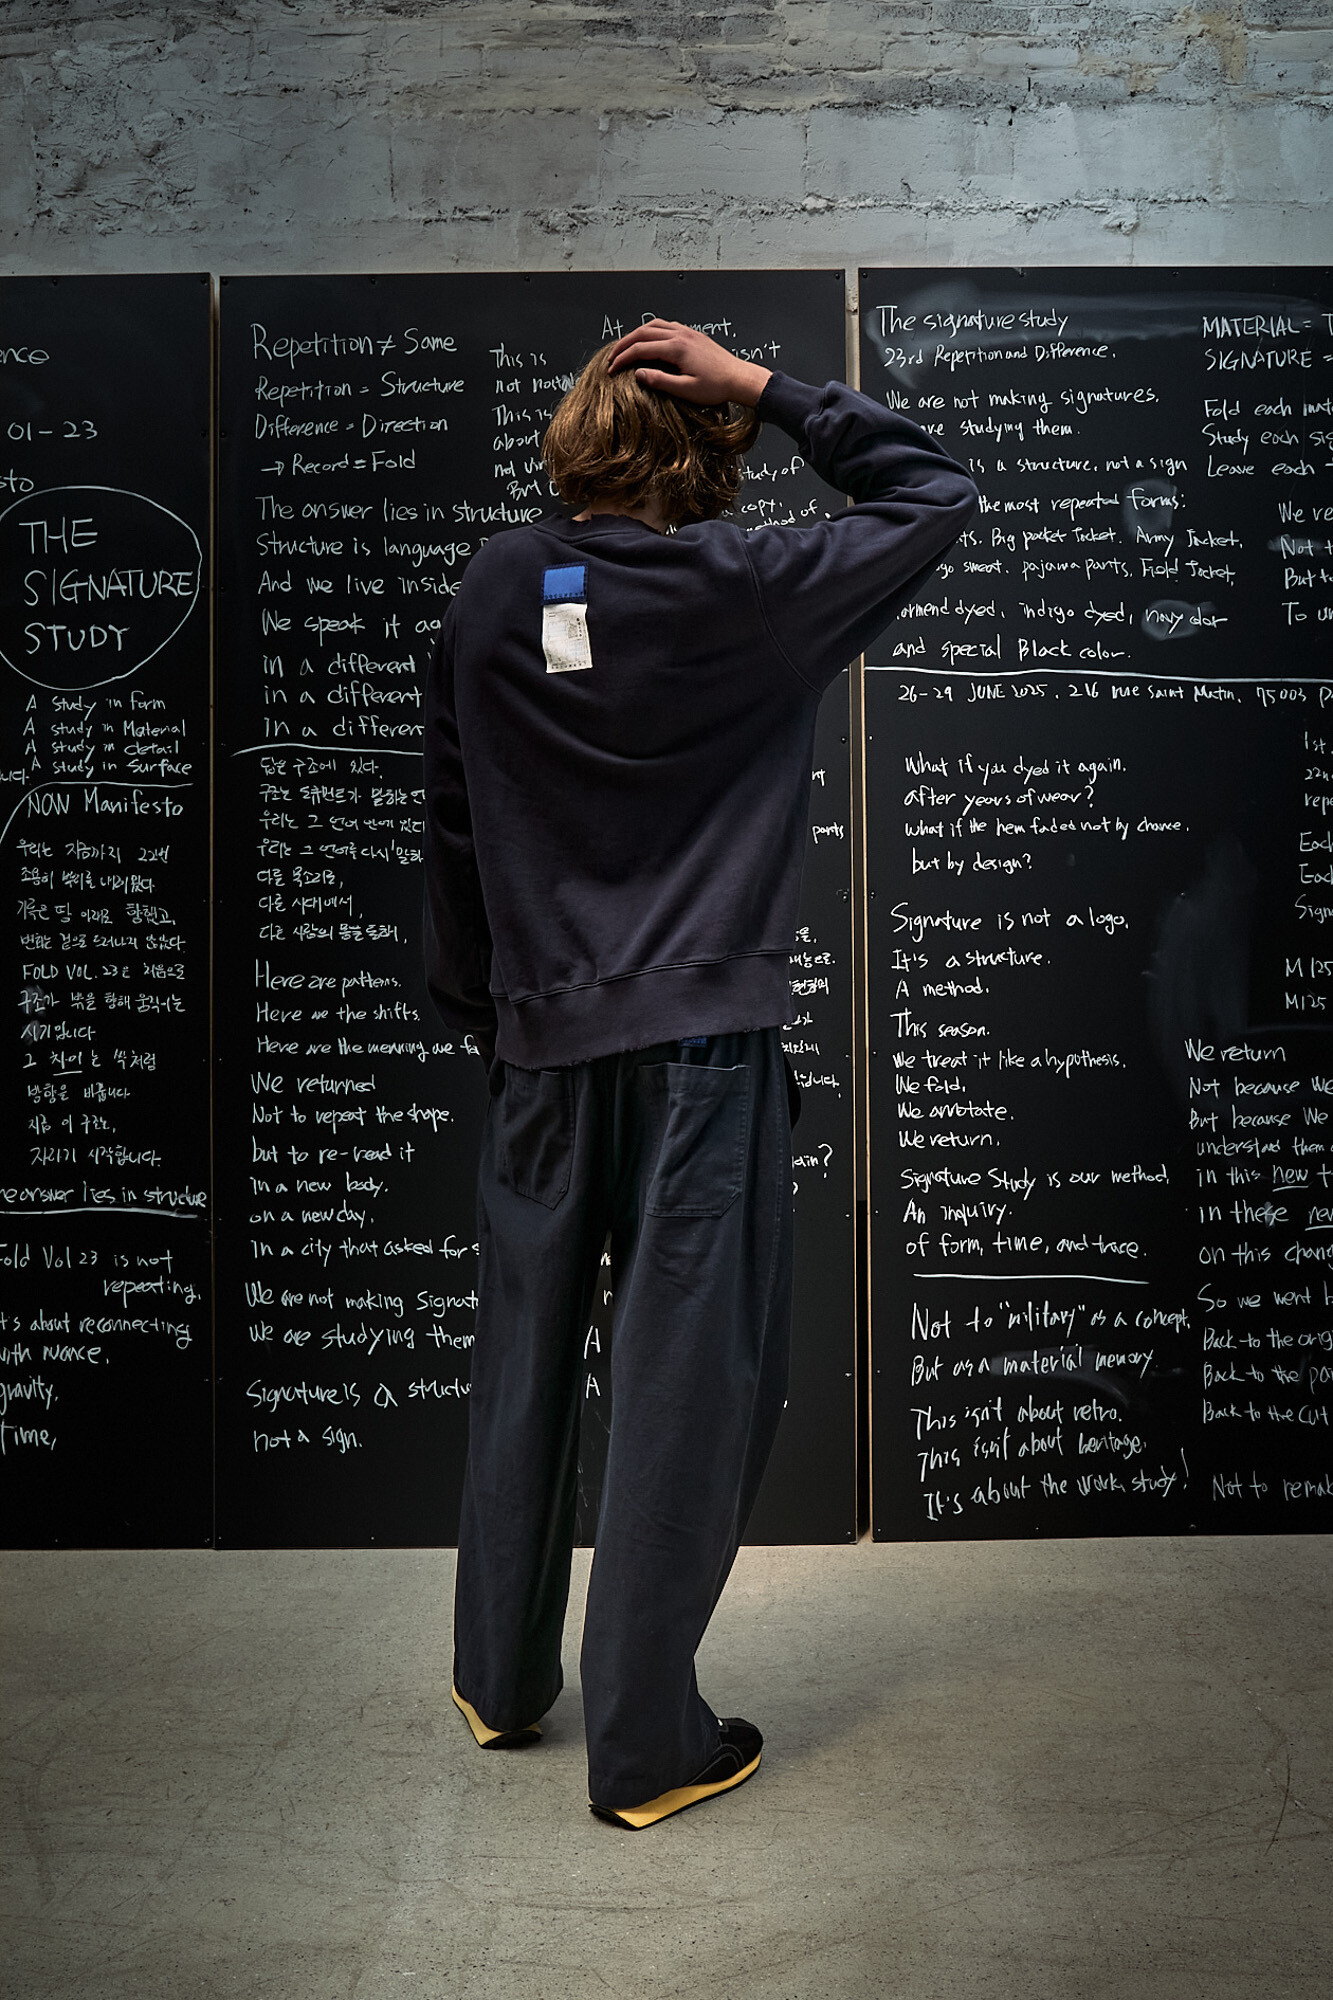 ence
01-23
sto
THE
SIGNATURE
STUDY
A study in form
A study in Material
A study in detail
A study in Surface
NOW Manifesto
우리는 지금까지 22번
조용히 뿌리를 내려왔다
기록은 땅 아래로 향했고,
변화는 겉으로 드러나지 않았다
FOLD VOL.23은 처음으로
구조가 밖을 향해 움직이는
시기입니다
그 차이는 싹처럼
방향을 바꿉니다
지금 이 구조는,
자라기 시작합니다.
he answer lies in structure
Fold Vol 23 is not
repeating.
t's about reconnecting
with nuance,
gravity,
Time,
Repetition ≠ Same
Repetition = Structure
Difference = Direction
→ Record = Fold
The answer lies in structure
Structure is language
And we live inside
We speak it ag
in a different
in a different
In a differen
답은 구조에 있다.
구조는 도큐먼트가 말하는 언
우리는 그 언어 안에 있다
우리는 그 언어를 다시 말하
다른 목소리로,
다른 시대에서,
다른 사람의 몸을 통해,
Here are patterns.
Here are the shifts.
Here are the meaning we fo
We returned
Not to repeat the shape.
but to re-read it
In a new body.
on a new day.
In a city that asked for s
We are not making Signat
We are studying them
Signature is a structu
not a sign.
At
ment.
This is
isn't
not
This is
about
not
But
study of
copy,
method of
parts
ain?
The signature study
23rd Repetition and Difference.
We are not making signatures.
are studying them.
is a structure, not a sign
the most repeated forms:
ts. Big pocket Jacket. Army Jacket,
go sweat. pajama pants. Field Jacket,
arment dyed, indigo dyed, navy color
and special Black color.
26-29 JUNE 2025. 216 rue Saint Matin, 75003 P
What if you dyed it again.
after years of wear?
what if the hem faded not by chance.
but by design?
Signature is not a logo.
It's a structure.
A method.
This season.
We treat it like a hypothesis.
We fold.
We annotate.
We return.
Signature Study is our method,
An inquiry.
of form, time, and trace.
Not to "military" as a concept,
But as a material memory.
This isn't about retro.
This isn't about heritage.
It's about the work study!
MATERIAL = T
SIGNATURE =
Fold each mat
Study each sig
Leave each
We re
Not t
But to
To un
1st.
22n
repe
Each
Eac
Sign
M125
M125
We return
Not because We
But because We
understand them
in this new t
in these new
on this chang
So we went b
Back to the orig
Back to the pa
Back to the cut
Not to remak